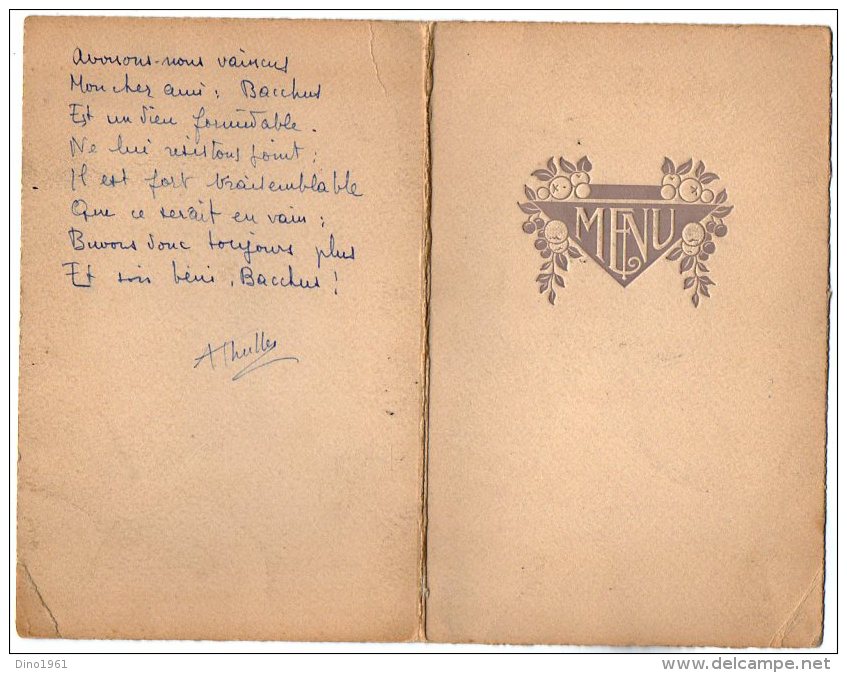 Avouons-nous vaincus
Mon cher ami : Bacchus
Est un dieu formidable.
Ne lui résistons point ;
Il est fort vraisemblable
Que ce serait en vain ;
Buvons donc toujours plus
Et sois béni, Bacchus !
MENU
Dino1961
www.delcampe.net